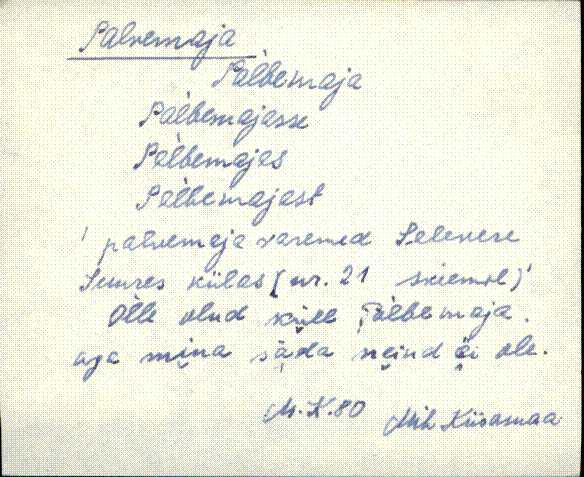 Palvemaja
Pàlbemaja
Pàlbemajasse
Pàlbemajas
Pàlbemajast
' palvemaja varemed Selevere
Suures külas (nr. 21 skiemil)'
Olle olnd küll Pàlbemaja.
aga mina sàda neind èi ole.
M.K. 80 Mih Kiisamaa